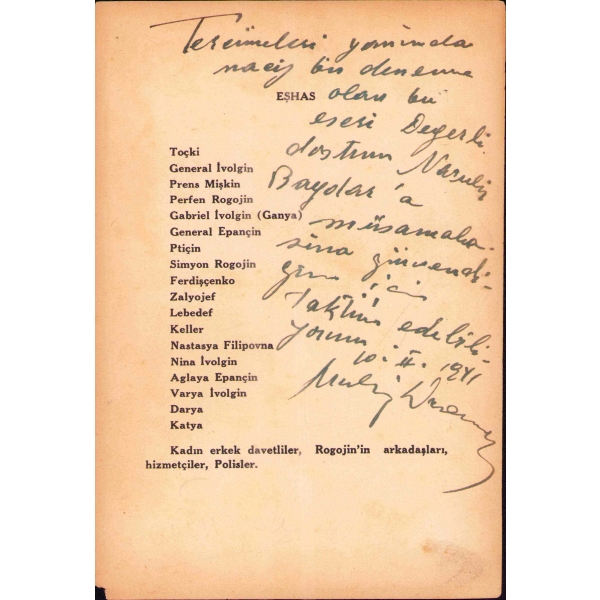 Tercümeleri yanında
naçiz bir deneme
olan bu
eseri Değerli
dostum Nasuhi
Baydar'a
müsamaha-
sına güvendi-
ğim için
takdim edebili-
yorum
10. II. 1941
EŞHAS
Toçki
General İvolgin
Prens Mişkin
Perfen Rogojin
Gabriel İvolgin (Ganya)
General Epançin
Ptiçin
Simyon Rogojin
Ferdişçenko
Zalyojef
Lebedef
Keller
Nastasya Filipovna
Nina İvolgin
Aglaya Epançin
Varya İvolgin
Darya
Katya
Kadın erkek davetliler, Rogojin'in arkadaşları,
hizmetçiler, Polisler.